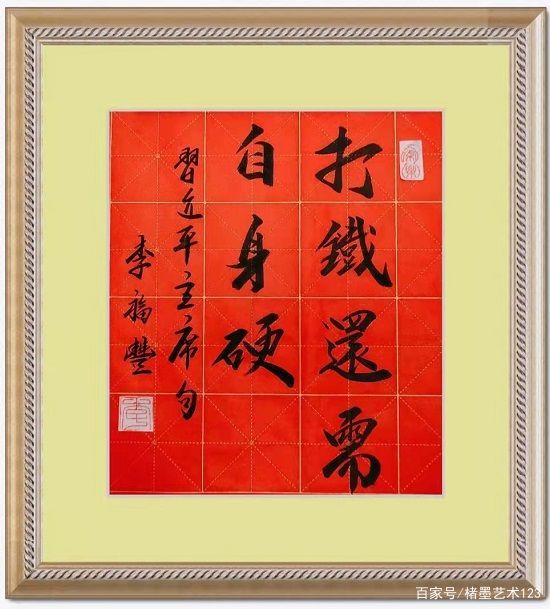 打鐵還需
自身硬
習近平主席句
李福豐
百家号/楮墨艺术123